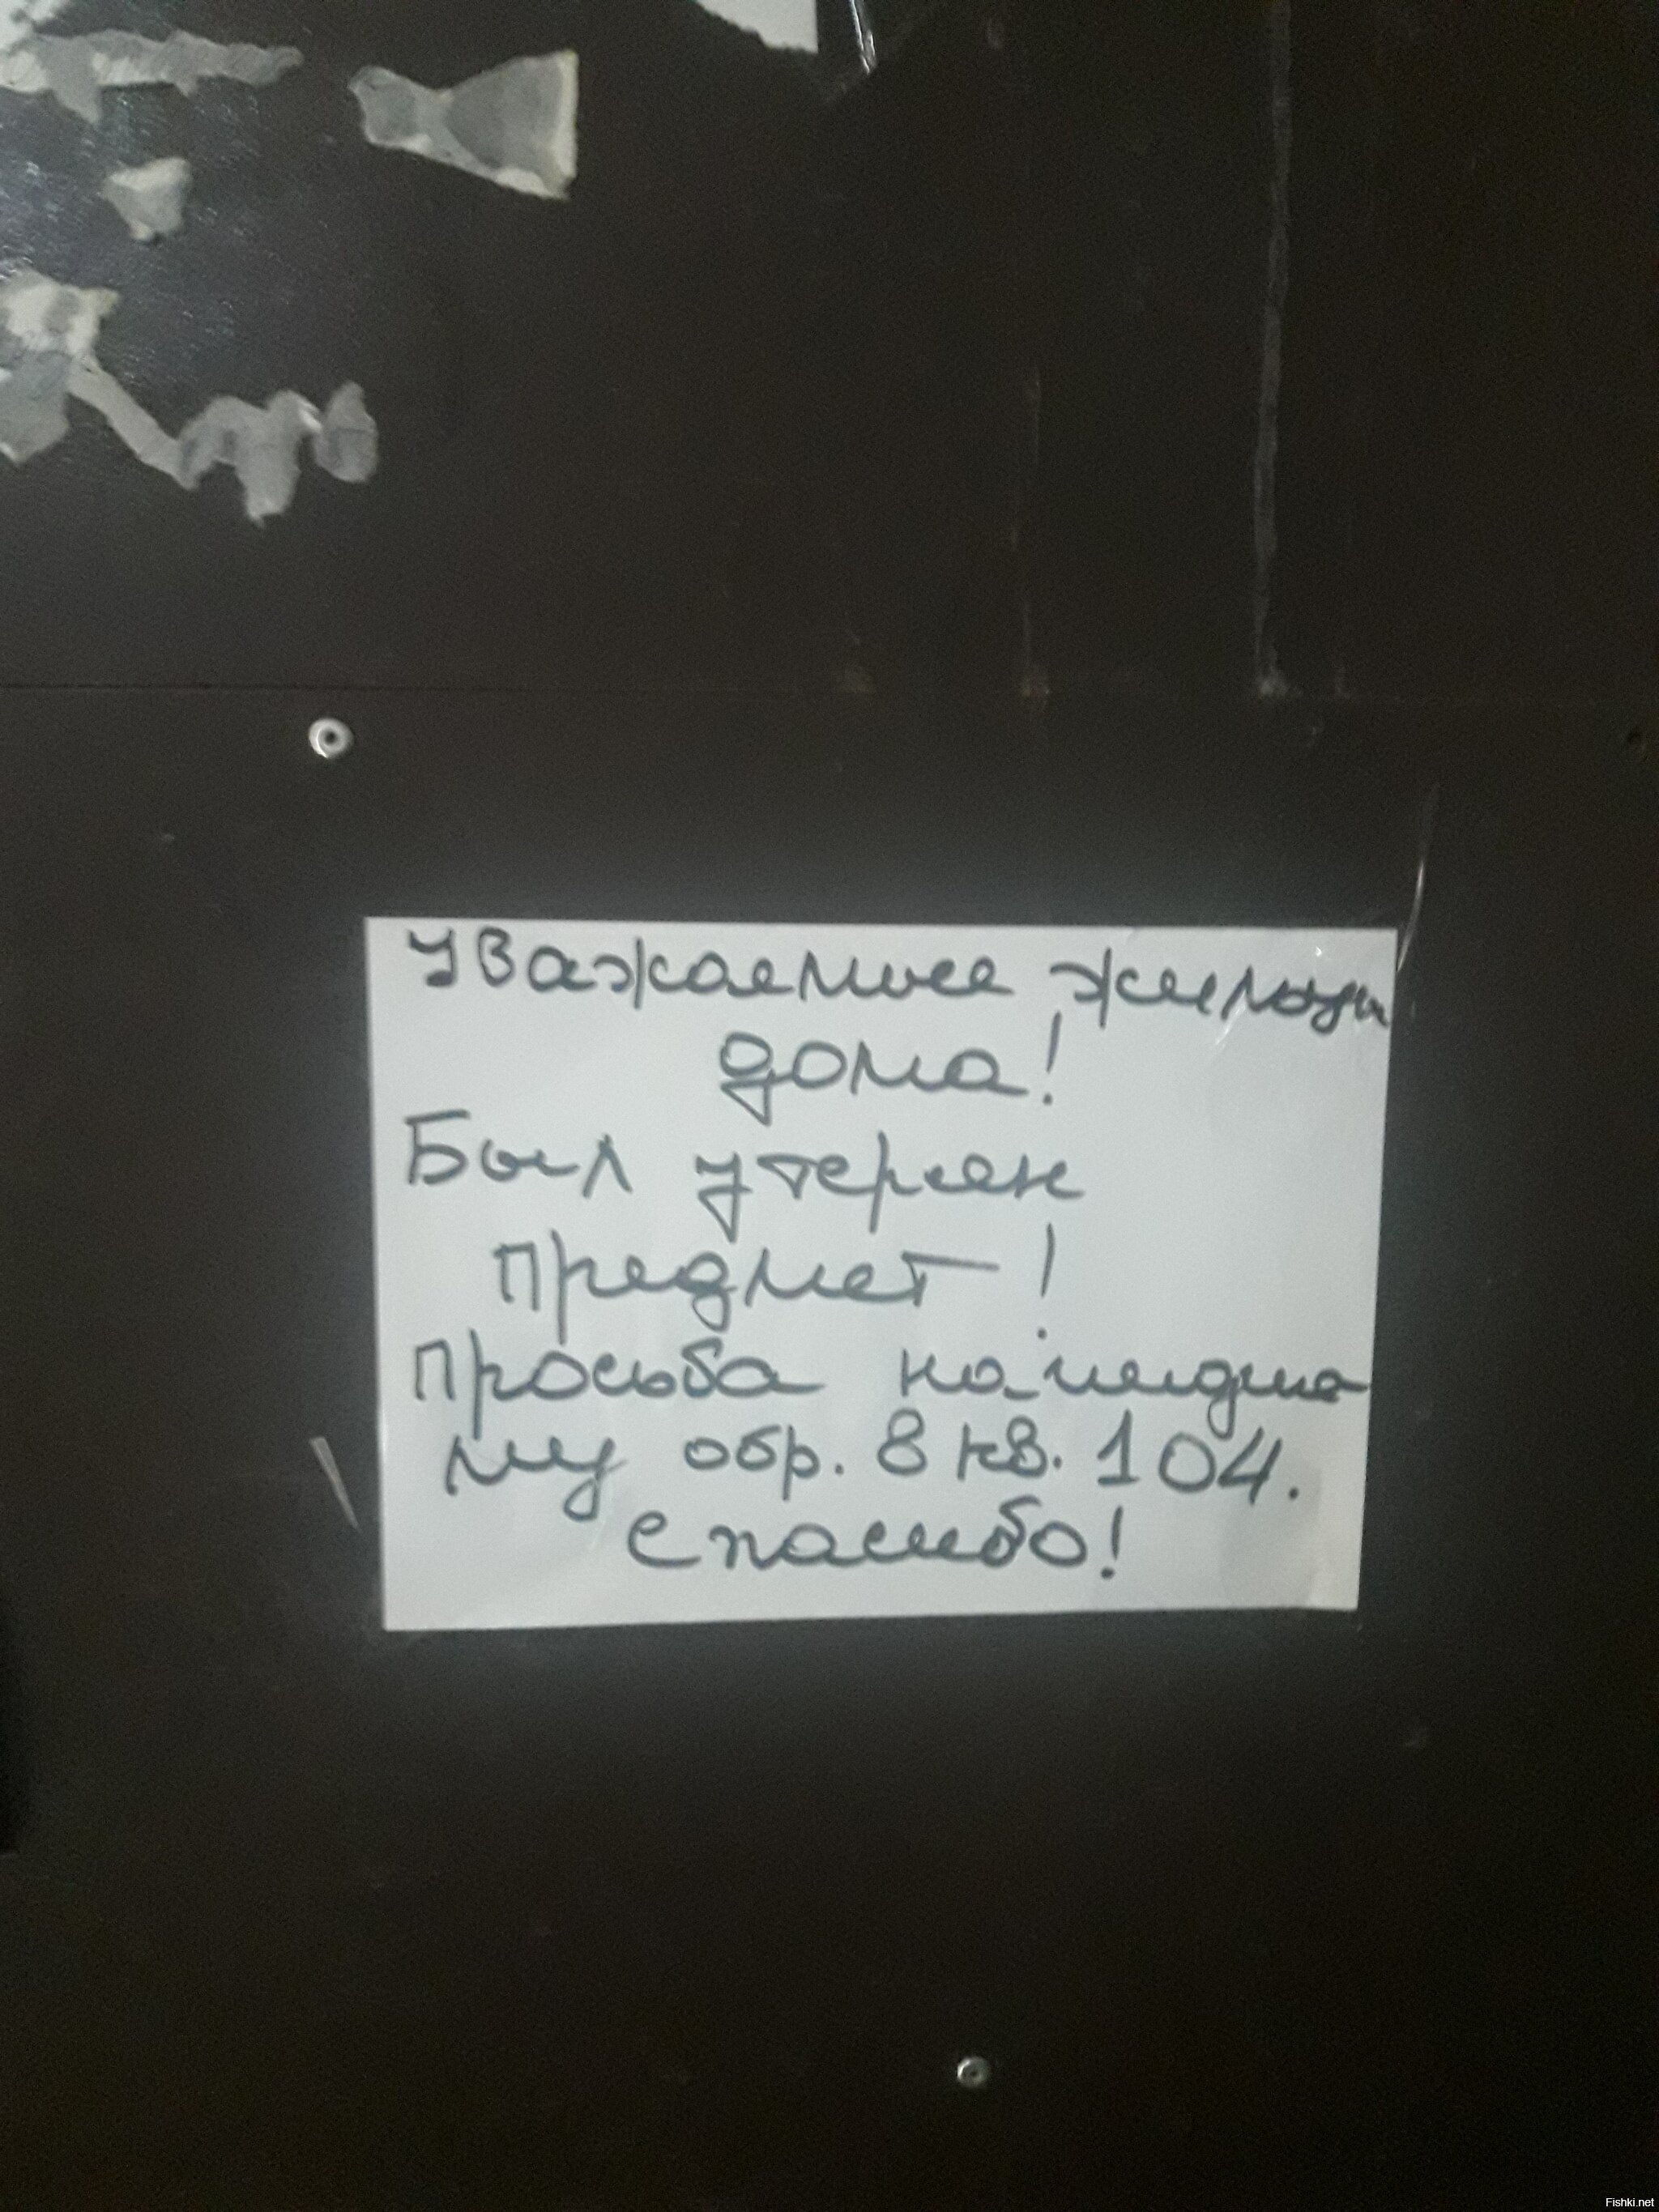 Уважаемые жильцы
дома!
Был утерян
предмет!
Просьба нашедше
му обр. в кв. 104.
Спасибо!
Fishki.net